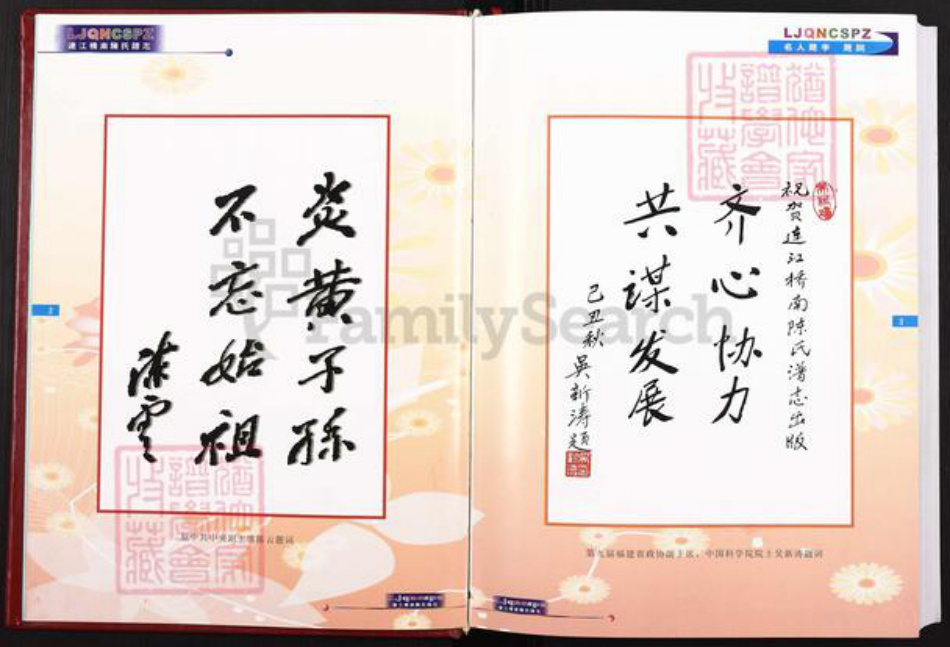 LJQNCSPZ
连江桥南陈氏谱志
炎黄子孫
不忘始祖
陈雲
中共中央副主席陈云题词
2
FamilySearch
LJQNCSPZ
名人题字 题词
祝贺连江桥南陈氏谱志出版
齐心协力
共谋发展
己丑秋 吴新涛题
第九届福建省政协副主席、中国科学院院士吴新涛题词
猶他家
譜學會
收藏
猶他家
譜學會
收藏